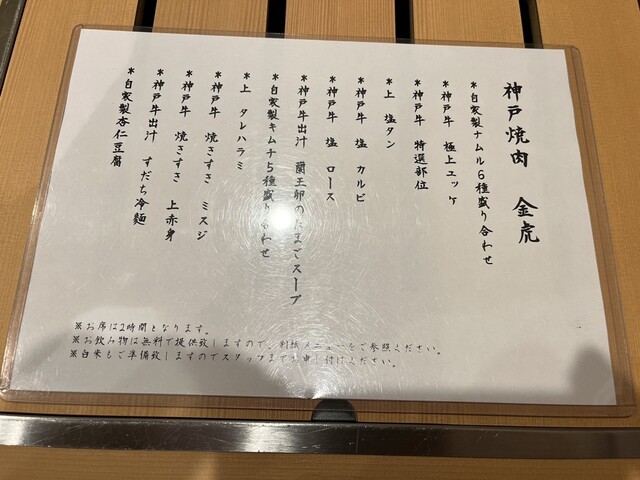 神戸焼肉 金虎
*自家製ナムル6種盛り合わせ
*神戸牛 極上ユッケ
*神戸牛 特選部位
*上 塩タン
*神戸牛 塩 カルビ
*神戸牛 塩 ロース
*神戸牛出汁 蘭王卵のたまごスープ
*自家製キムチ5種盛り合わせ
*上 タレハラミ
*神戸牛 焼きすき ミスジ
*神戸牛 焼きすき 上赤身
*神戸牛出汁 すだち冷麺
*自家製杏仁豆腐
※お席は2時間となります。
※お飲み物は無料で提供致しますので、別紙メニューをご参照ください。
※白米もご準備致しますのでスタッフまでお申し付けください。